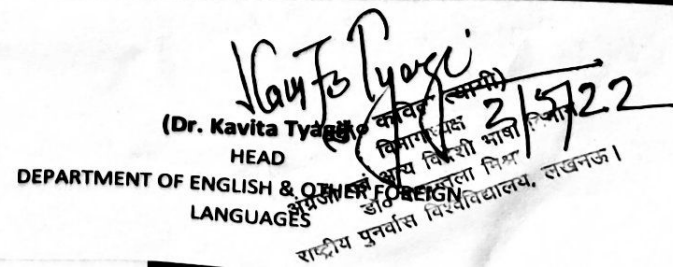 Kavita Tyagi
2/5/22
(Dr. Kavita Tyagi)
HEAD
DEPARTMENT OF ENGLISH & OTHER FOREIGN
LANGUAGES
कविता त्यागी)
विभागाध्यक्ष
अंग्रेजी एवं अन्य विदेशी भाषा विभाग
डॉ० मिश्रा
राष्ट्रीय पुनर्वास विश्वविद्यालय, लखनऊ।